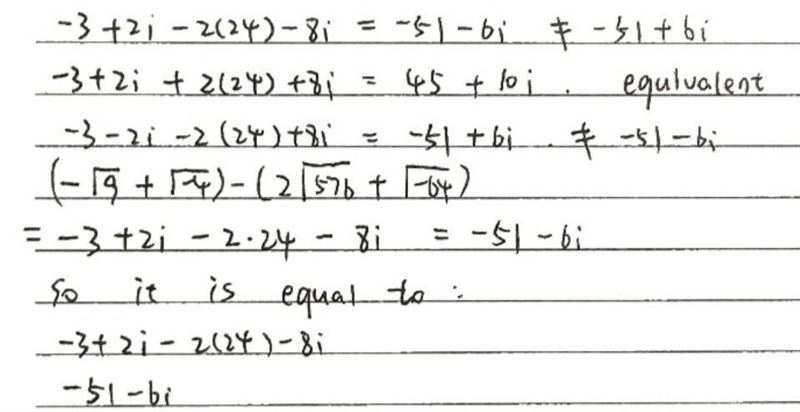 -3+2i-2(24)-8i = -51-6i ≠ -51+6i
-3+2i+2(24)+8i = 45+10i. equivalent
-3-2i-2(24)+8i = -51+6i. ≠ -51-6i
(-√9+√-4)-(2√576+√-64)
= -3+2i-2·24-8i = -51-6i
So it is equal to:
-3+2i-2(24)-8i
-51-6i